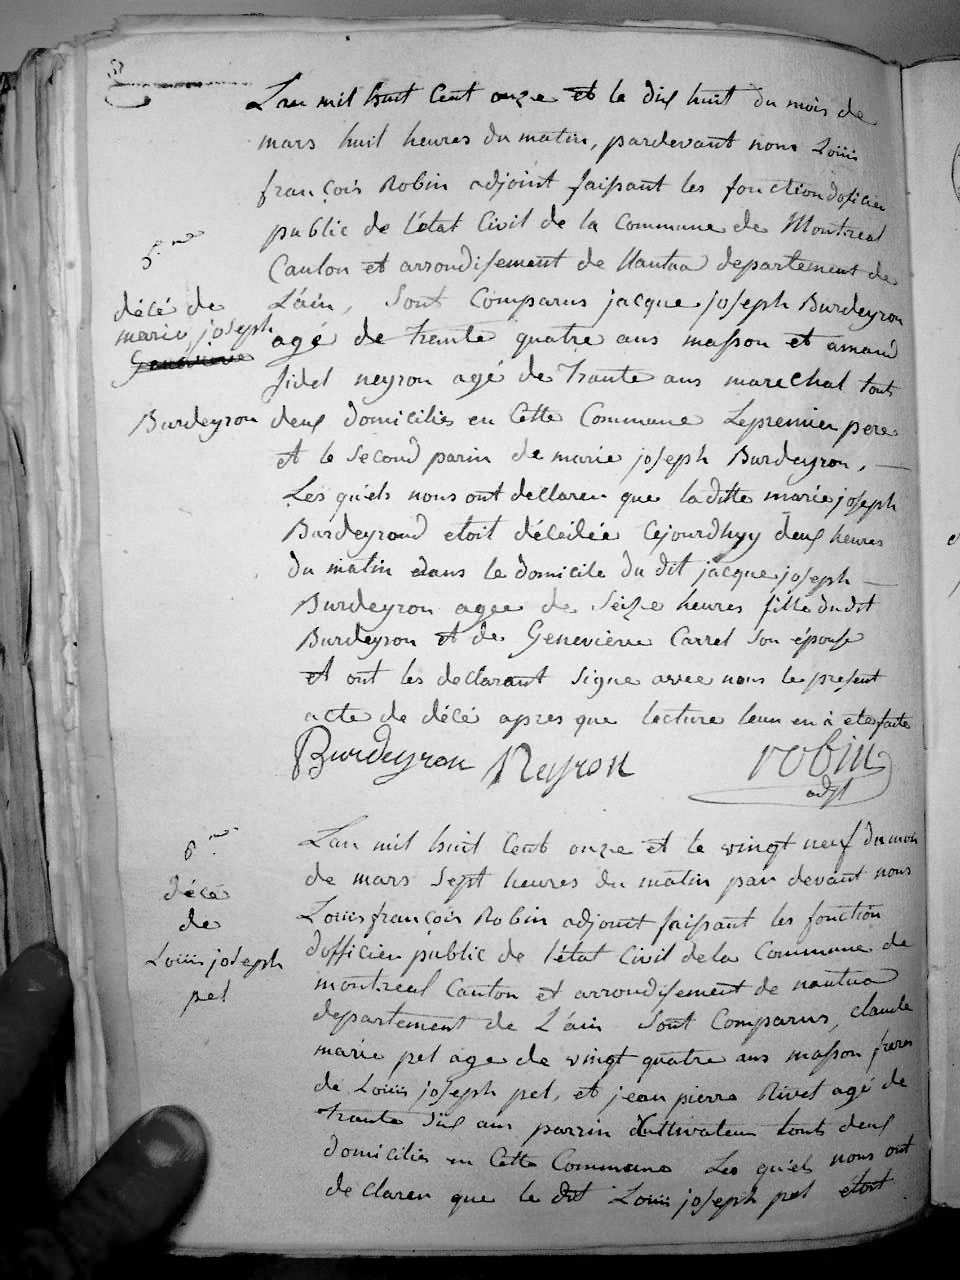 L'an mil huit Cent onze et le dix huit du mois de
mars huit heures du matin, pardevant nous Louis
françois Robin adjoint faisant les fonction d'oficier
public de l'état Civil de la Commune de Montreal
5.me
Canton et arrondisement de Nantua departement de
décé de
marie joseph
Burdeyron
L'ain, Sont Comparus jacque joseph Burdeyron
agé de trante quatre ans masson et amand
fidel neyron agé de trante ans marechal touts
deux domiciliés en Cette Commune Le premier pere
et le Second parin de marie joseph Burdeyron,
Les quéls nous ont declaren que la ditte marie joseph
Burdeyrond etoit décédée Cejourdhuy deux heures
du matin dans le domicile du dit jacque joseph
Burdeyron agee de Seize heures fille dudit
Burdeyron et de Genevieve Carrel Son épouse
et ont les declarant Signe avec nous le present
acte de décé apres que lecture leur en à ete faite
Burdeyron Neyron robin
adjt
6.me
décé
de
Louis joseph
pel
L'an mil huit Cent onze et le vingt neuf du mois
de mars Sept heures du matin par devant nous
Louis françois Robin adjoint faisant les fonction
d'officier public de l'état Civil de la Commune de
montreal Canton et arrondisement de nantua
departement de L'ain Sont Comparus, claude
marie pel age de vingt quatre ans masson freres
de Louis joseph pel, et jean pierre Rivet agé de
trante Six ans parrin Cultivateur touts deux
domiciliés en Cette Commune Les quéls nous ont
declaren que le dit Louis joseph pel etoit